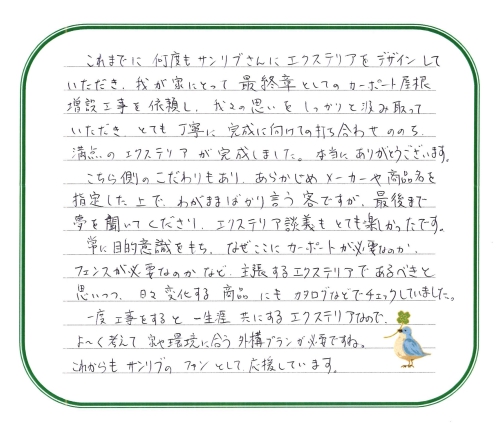 これまでに 何度もサンリブさんに エクステリアを デザインして
いただき、我が家にとって 最終章としての カーポート屋根
増設工事を依頼し、我々の思いを しっかりと汲み取って
いただき、とても 丁寧に 完成に向けての打ち合わせ ののち、
満点の エクステリア が 完成しました。本当に ありがとうございます。
こちら側の こだわりもあり、あらかじめ メーカーや商品名を
指定した 上で、わがまま ばかり言う 客ですが、最後まで
夢を聞いて くださり、エクステリア談義も とても楽しかったです。
常に目的意識をもち、なぜここに カーポートが必要なのか、
フェンスが必要なのか など、主張するエクステリアで あるべきと
思いつつ、日々変化する 商品 にも カタログなどでチェックしていました。
一度工事をすると 一生涯 共にする エクステリアなので、
よ〜く考えて 家や環境に合う 外構プランが必要ですね。
これからも サンリブの ファンとして 応援しています。